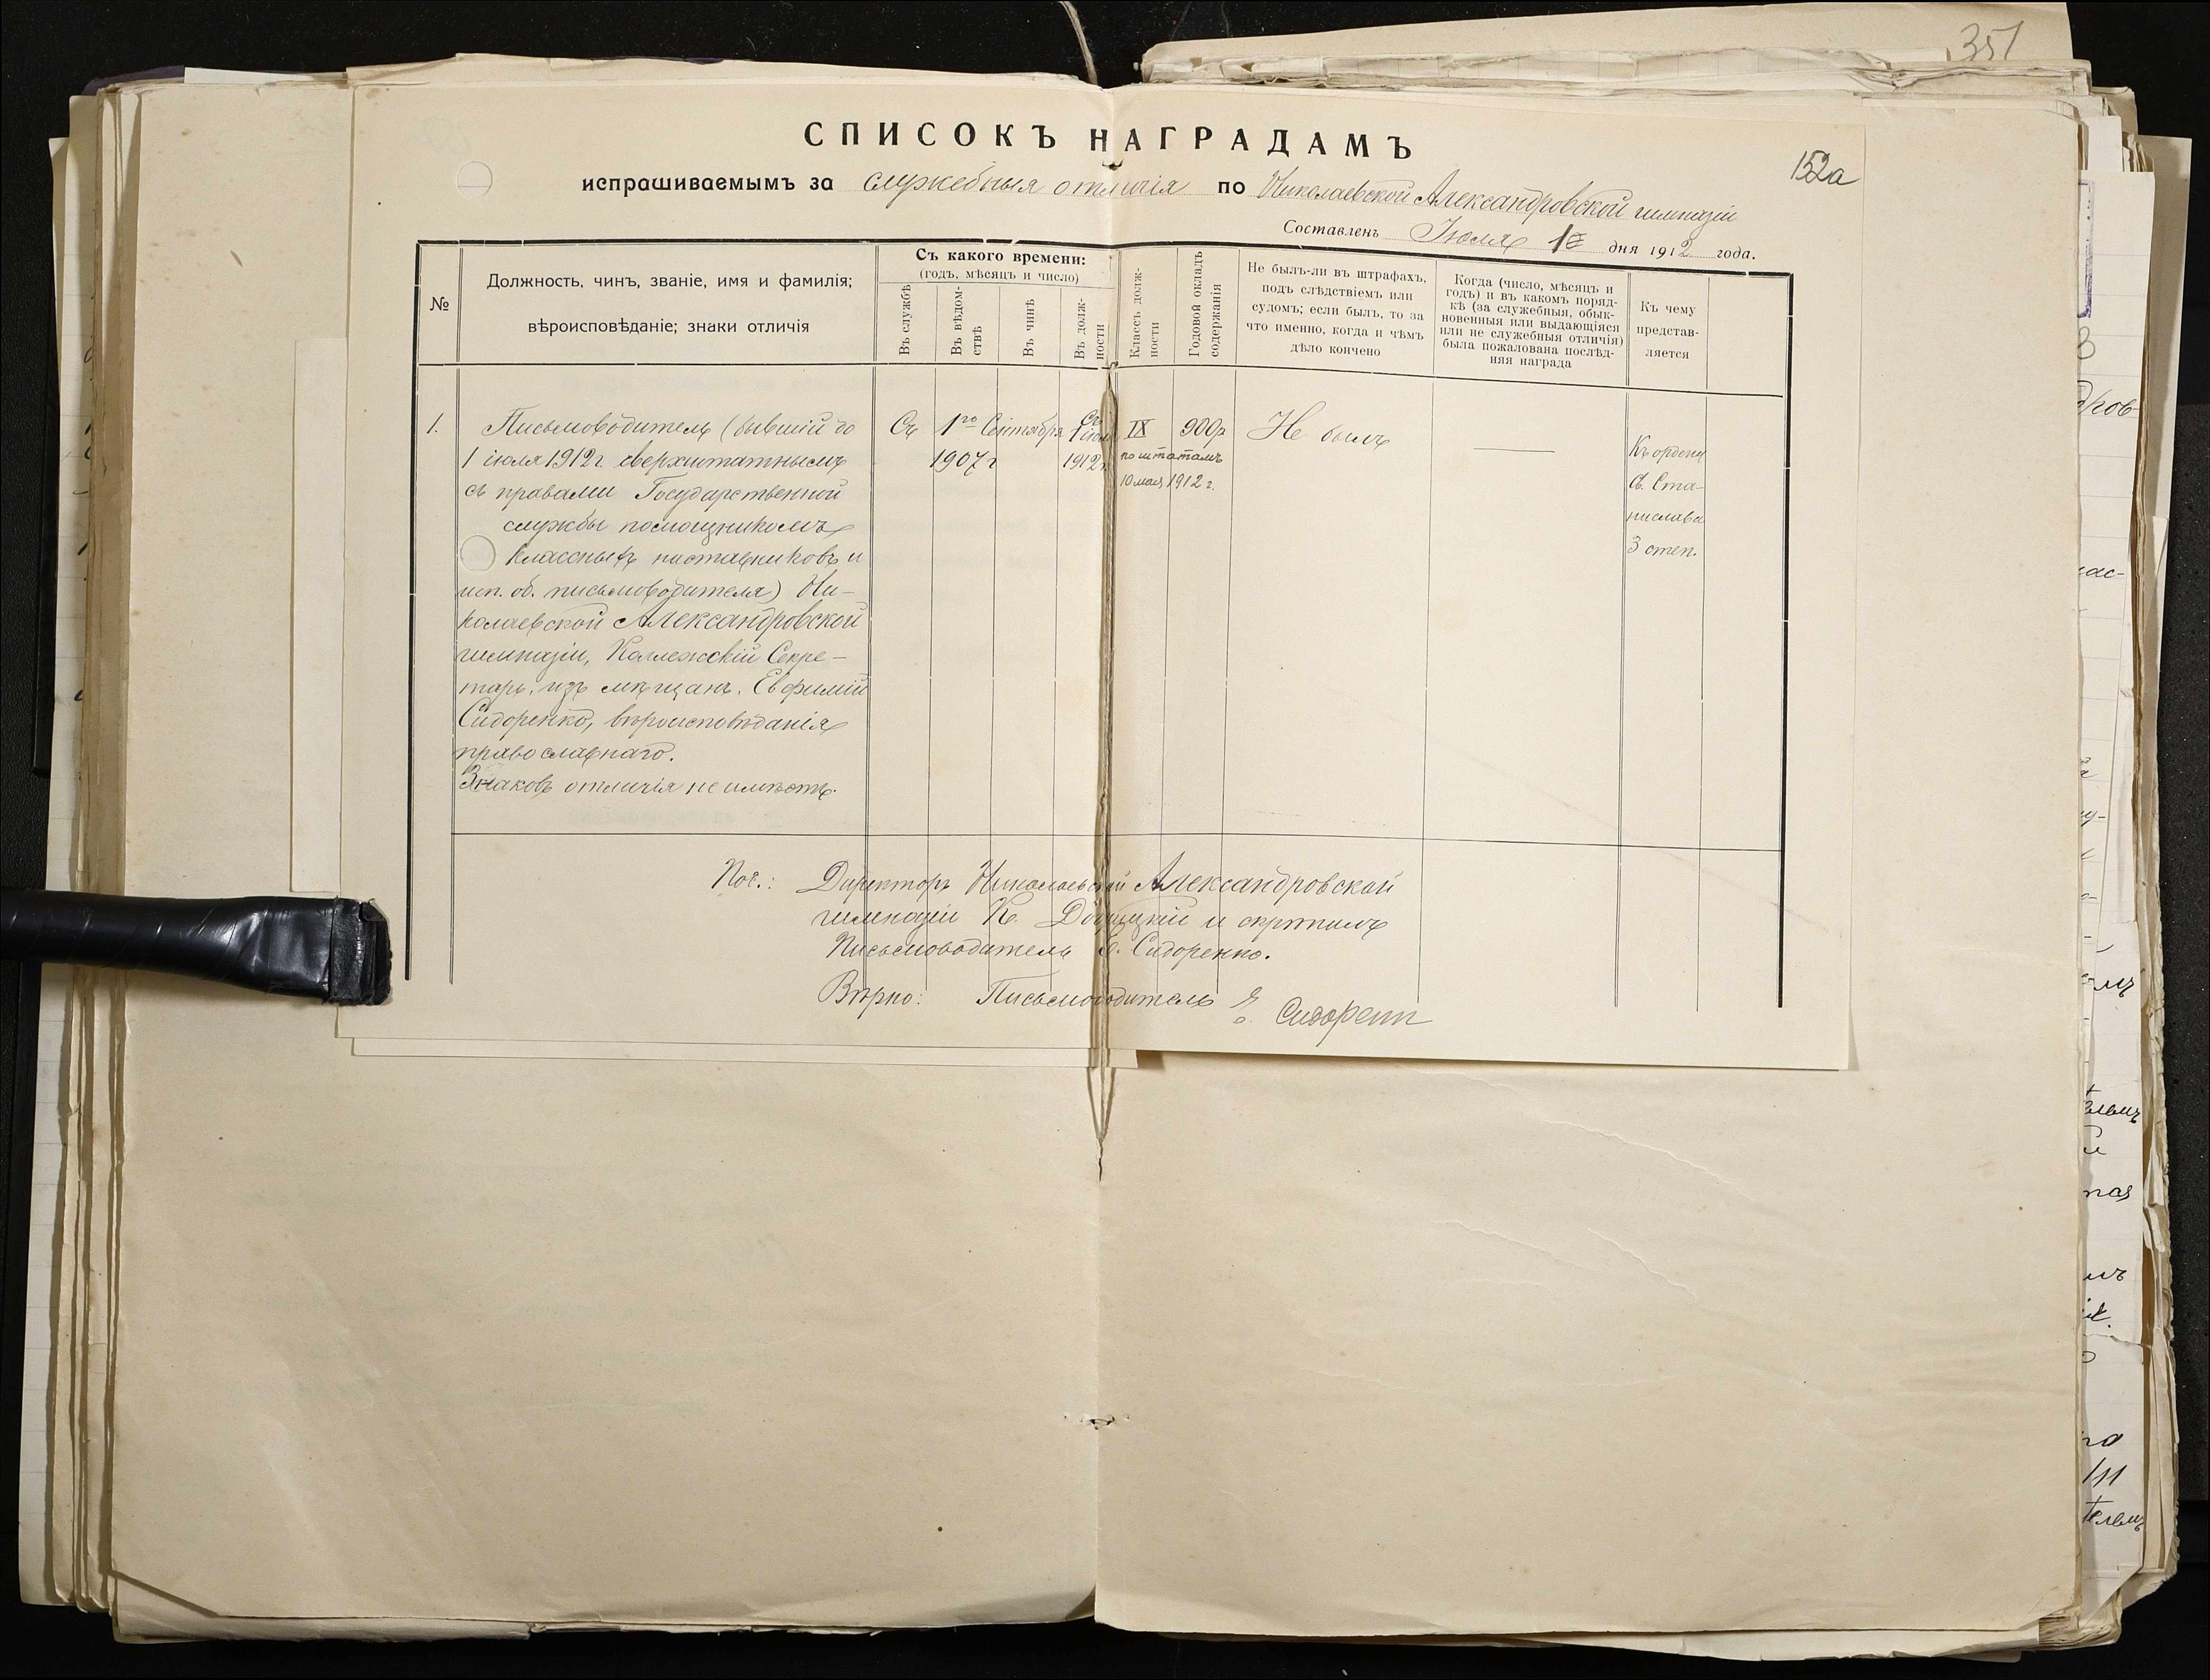 351
152а
СПИСОКЪ НАГРАДАМЪ
испрашиваемымъ за служебныя отличія по Николаевской Александровской гимназіи
Составленъ Іюля дня 1912 года.
№
Должность, чинъ, званіе, имя и фамилія;
вѣроисповѣданіе; знаки отличія
Съ какого времени:
(годъ, мѣсяцъ и число)
Въ службѣ
Въ вѣдом-
ствѣ
Въ чинѣ
Въ долж-
ности
Классъ долж-
ности
Годовой окладъ
содержанія
Не былъ-ли въ штрафахъ,
подъ слѣдствіемъ или
судомъ; если былъ, то за
что именно, когда и чѣмъ
дѣло кончено
Когда (число, мѣсяцъ и
годъ) и въ какомъ поряд-
кѣ (за служебныя, обык-
новенныя или выдающіяся
или не служебныя отличія)
была пожалована послѣд-
няя награда
Къ чему
представ-
ляется
1.
Письмоводитель (бывшій до
1 іюля 1912 г. сверхштатнымъ
съ правами Государственной
службы помощникомъ
классныхъ наставниковъ и
исп. об. письмоводителя) Ни-
колаевской Александровской
гимназіи, Коллежскій Секре-
тарь, изъ мѣщанъ, Евфимій
Сидоренко, вѣроисповѣданія
православнаго.
Знаковъ отличія не имѣетъ.
Съ 1го Сентября
1907 г
Съ
1 іюля
1912 г.
IX
900р
по штатамъ
10 мая 1912 г.
Не былъ
Къ ордену
Св. Ста-
нислава
3 степ.
Под.: Директоръ Николаевской Александровской
гимназіи К. и скрѣпилъ
Письмоводитель Е. Сидоренко.
Вѣрно: Письмоводитель Е. Сидоренко